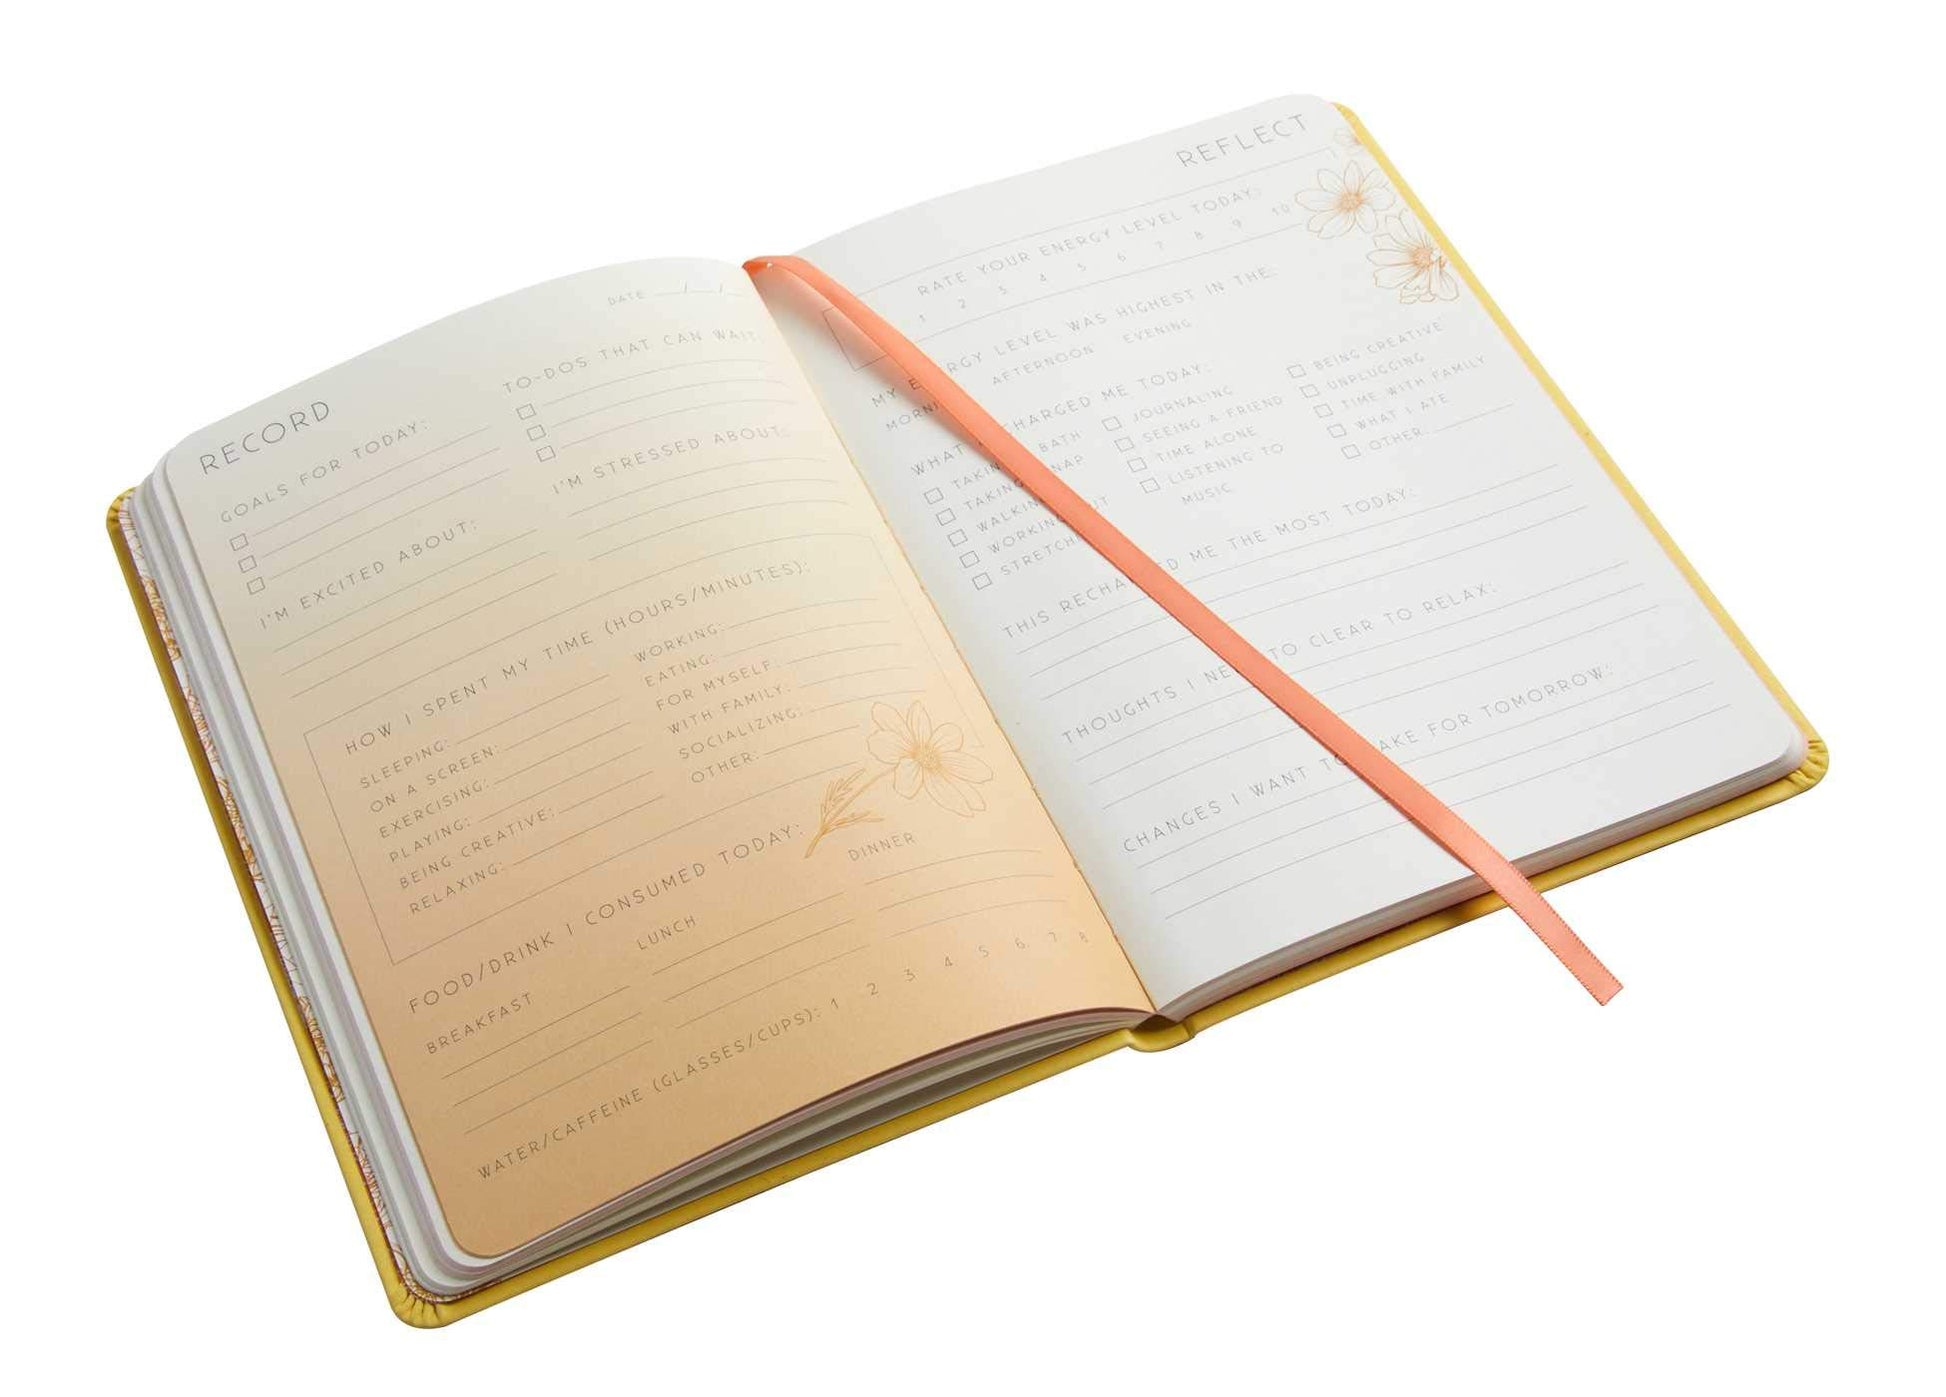 RECORD
DATE __/__/__
GOALS FOR TODAY:
TO-DOS THAT CAN WAIT
I'M EXCITED ABOUT:
I'M STRESSED ABOUT:
HOW I SPENT MY TIME (HOURS/MINUTES):
SLEEPING:
ON A SCREEN:
EXERCISING:
PLAYING:
BEING CREATIVE:
RELAXING:
WORKING:
EATING:
FOR MYSELF:
WITH FAMILY:
SOCIALIZING:
OTHER:
FOOD/DRINK I CONSUMED TODAY:
BREAKFAST
LUNCH
DINNER
WATER/CAFFEINE (GLASSES/CUPS): 1 2 3 4 5 6 7 8
REFLECT
RATE YOUR ENERGY LEVEL TODAY:
1 2 3 4 5 6 7 8 9 10
MY E RGY LEVEL WAS HIGHEST IN THE:
MORNI AFTERNOON EVENING
WHAT CHARGED ME TODAY:
TAKIN BATH
TAKIN NAP
WALKIN
WORKIN OUT
STRETCHI
JOURNALING
SEEING A FRIEND
TIME ALONE
LISTENING TO
MUSIC
BEING CREATIVE
UNPLUGGING
TIME WITH FAMILY
WHAT I ATE
OTHER
THIS RECHA D ME THE MOST TODAY:
THOUGHTS I NE TO CLEAR TO RELAX:
CHANGES I WANT TO AKE FOR TOMORROW: